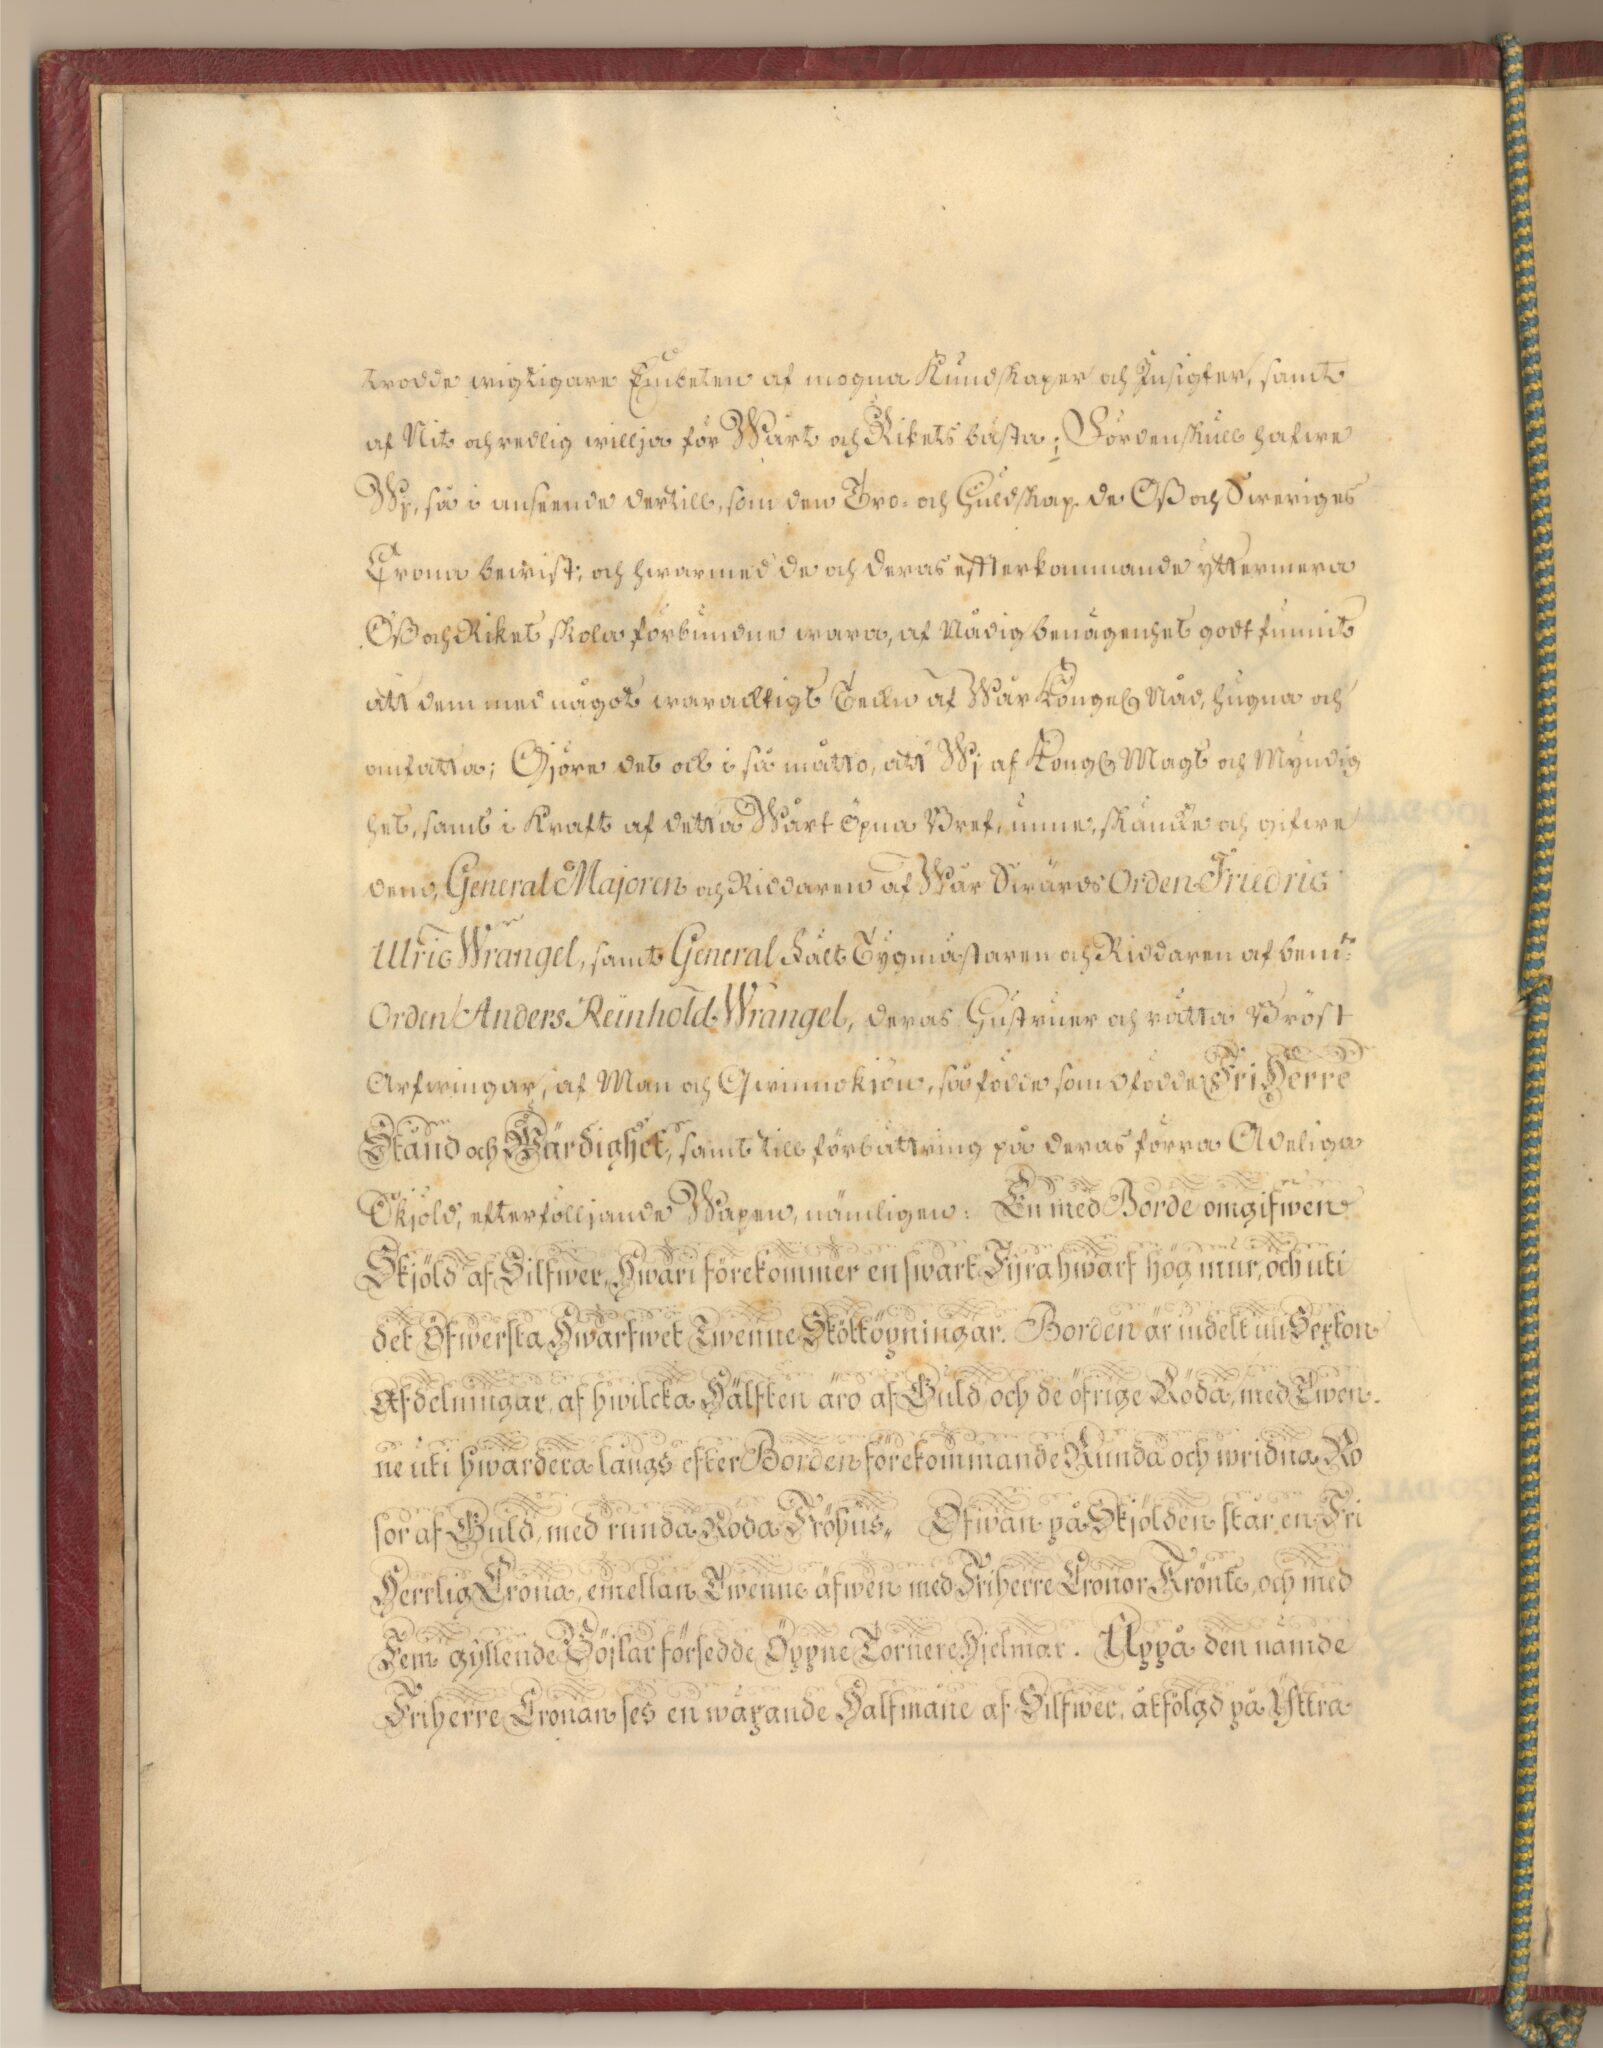 trodde wigtigare Embeten af mogna Kundskaper och Insigter, samt
af Nit och redlig willja för Wårt och Rikets bästa; Fördenskull hafwe
Wj, så i anseende dertill, som den Tro- och Huldskap de Oß och Sweriges
Crona bewist, och hwarmed de och deras effterkommande yttermera
Oß och Riket skola förbundne wara, af Nådig benägenhet godt funnit
att dem med något waracktigt Teckn af Wår Kongel. Nåd, hugna och
omfatta; Gjöre det ock i så matto, att Wj af Kongl. Magt och Myndig
het, samt i Kraft af detta Wårt öpna Bref, unne, skäncke och gifwe
dem, General Majoren och Riddaren af Wår Swärds Orden Friedric
Ulric Wrangel, samt General Fält Tygmästaren och Riddaren af bem:te
Orden Anders Reinhold Wrangel, deras Hustruer och rätta Bröst
Arfwingar, af Man och Qwinnokjön, så födde som ofödde Fri Herre
Stånd och Wärdighet, samt till förbättring på deras förra Adeliga
Skjöld, efterfölljande Wapen, nämligen: En med Borde omgifwen
Skjöld af Silfwer, Hwari förekommer en swart Fijra hwarf hög mur, och uti
det Öfwersta Hwarfwet Twenne Skottöpningar. Borden är indelt uti Sexton
Afdelningar, af hwilcka Hälften äro af Guld, och de öfrige Röda, med Twen-
ne uti hwardera långs efter Borden förekommande Runda och wridna Ro
sor af Guld, med runda Röda Fröhus. Ofwan på Skjölden står en Fri
Herrlig Crona, emellan Twenne äfwen med Friherre Cronor Krönte, och med
Fem gyllende Böjlar försedde Öppne Tornere Hjelmar. Uppå den nämde
Friherre Cronan ses en wäxande Halfmåne af Silfwer, åtfölgd på Yttra